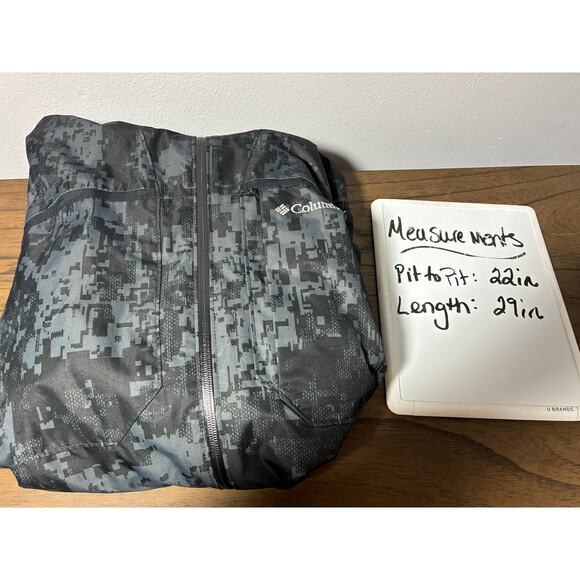 Columbia
Measurements
Pit to Pit: 22in
Length: 29in
U BRANDS